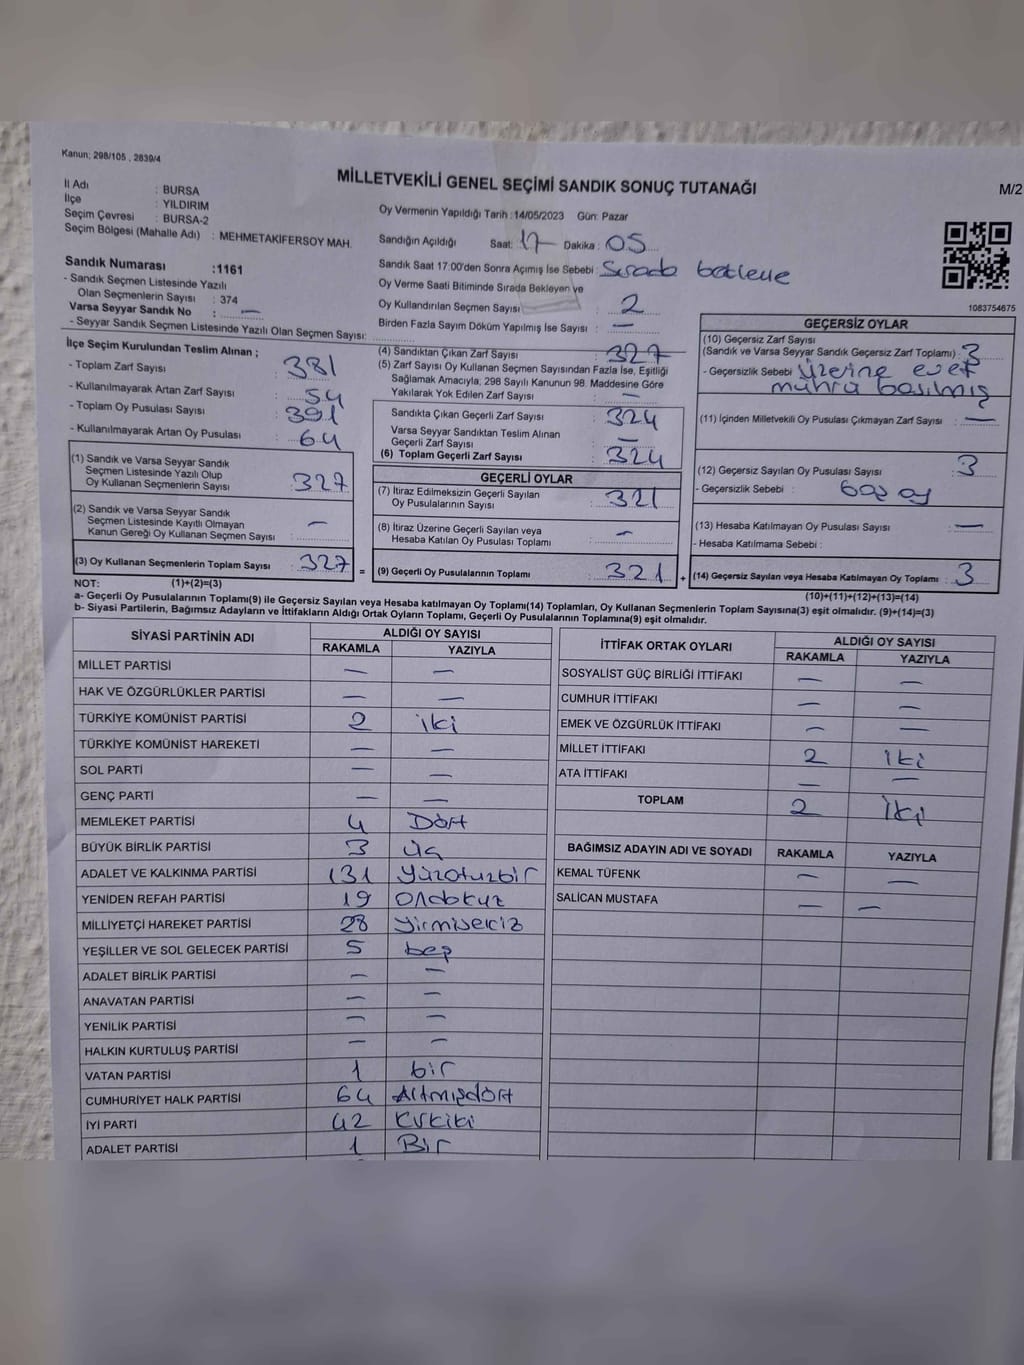 Kanun; 298/105 , 2839/4
MİLLETVEKİLİ GENEL SEÇİMİ SANDIK SONUÇ TUTANAĞI
M/2
İl Adı : BURSA
İlçe : YILDIRIM
Seçim Çevresi : BURSA-2
Seçim Bölgesi (Mahalle Adı) : MEHMETAKİFERSOY MAH.
Oy Vermenin Yapıldığı Tarih :14/05/2023 Gün: Pazar
Sandığın Açıldığı Saat: 17 Dakika : 05
Sandık Saat 17:00'den Sonra Açımış İse Sebebi : Sırada bekleme
Oy Verme Saati Bitiminde Sırada Bekleyen ve
Oy Kullandırılan Seçmen Sayısı : 2
Birden Fazla Sayım Döküm Yapılmış İse Sayısı : —
1083754675
Sandık Numarası :1161
- Sandık Seçmen Listesinde Yazılı
Olan Seçmenlerin Sayısı : 374
Varsa Seyyar Sandık No : —
- Seyyar Sandık Seçmen Listesinde Yazılı Olan Seçmen Sayısı:
İlçe Seçim Kurulundan Teslim Alınan ;
- Toplam Zarf Sayısı : 381
- Kullanılmayarak Artan Zarf Sayısı : 54
- Toplam Oy Pusulası Sayısı : 391
- Kullanılmayarak Artan Oy Pusulası : 64
(1) Sandık ve Varsa Seyyar Sandık
Seçmen Listesinde Yazılı Olup
Oy Kullanan Seçmenlerin Sayısı : 327
(2) Sandık ve Varsa Seyyar Sandık
Seçmen Listesinde Kayıtlı Olmayan
Kanun Gereği Oy Kullanan Seçmen Sayısı : —
(3) Oy Kullanan Seçmenlerin Toplam Sayısı : 327 =
(4) Sandıktan Çıkan Zarf Sayısı : 327
(5) Zarf Sayısı Oy Kullanan Seçmen Sayısından Fazla İse, Eşitliği
Sağlamak Amacıyla, 298 Sayılı Kanunun 98. Maddesine Göre
Yakılarak Yok Edilen Zarf Sayısı : —
Sandıkta Çıkan Geçerli Zarf Sayısı : 324
Varsa Seyyar Sandıktan Teslim Alınan
Geçerli Zarf Sayısı : —
(6) Toplam Geçerli Zarf Sayısı : 324
GEÇERLİ OYLAR
(7) İtiraz Edilmeksizin Geçerli Sayılan
Oy Pusulalarının Sayısı : 321
(8) İtiraz Üzerine Geçerli Sayılan veya
Hesaba Katılan Oy Pusulası Toplamı : —
(9) Geçerli Oy Pusulalarının Toplamı : 321 +
GEÇERSİZ OYLAR
(10) Geçersiz Zarf Sayısı
(Sandık ve Varsa Seyyar Sandık Geçersiz Zarf Toplamı) : 3
- Geçersizlik Sebebi : Üzerine evet
mührü basılmış
(11) İçinden Milletvekili Oy Pusulası Çıkmayan Zarf Sayısı : —
(12) Geçersiz Sayılan Oy Pusulası Sayısı : 3
- Geçersizlik Sebebi : boş oy
(13) Hesaba Katılmayan Oy Pusulası Sayısı : —
- Hesaba Katılmama Sebebi :
(14) Geçersiz Sayılan veya Hesaba Katılmayan Oy Toplamı : 3
NOT: (1)+(2)=(3)
(10)+(11)+(12)+(13)=(14)
a- Geçerli Oy Pusulalarının Toplamı(9) ile Geçersiz Sayılan veya Hesaba katılmayan Oy Toplamı(14) Toplamları, Oy Kullanan Seçmenlerin Toplam Sayısına(3) eşit olmalıdır. (9)+(14)=(3)
b- Siyasi Partilerin, Bağımsız Adayların ve İttifakların Aldığı Ortak Oyların Toplamı, Geçerli Oy Pusulalarının Toplamına(9) eşit olmalıdır.
SİYASİ PARTİNİN ADI ALDIĞI OY SAYISI
RAKAMLA YAZIYLA
MİLLET PARTİSİ — —
HAK VE ÖZGÜRLÜKLER PARTİSİ — —
TÜRKİYE KOMÜNİST PARTİSİ 2 iki
TÜRKİYE KOMÜNİST HAREKETİ — —
SOL PARTİ — —
GENÇ PARTİ — —
MEMLEKET PARTİSİ 4 Dört
BÜYÜK BİRLİK PARTİSİ 3 üç
ADALET VE KALKINMA PARTİSİ 131 Yüzotuzbir
YENİDEN REFAH PARTİSİ 19 Ondokuz
MİLLİYETÇİ HAREKET PARTİSİ 28 Yirmisekiz
YEŞİLLER VE SOL GELECEK PARTİSİ 5 beş
ADALET BİRLİK PARTİSİ — —
ANAVATAN PARTİSİ — —
YENİLİK PARTİSİ — —
HALKIN KURTULUŞ PARTİSİ — —
VATAN PARTİSİ 1 bir
CUMHURİYET HALK PARTİSİ 64 Altmışdört
İYİ PARTİ 42 Kırkiki
ADALET PARTİSİ 1 Bir
İTTİFAK ORTAK OYLARI ALDIĞI OY SAYISI
RAKAMLA YAZIYLA
SOSYALİST GÜÇ BİRLİĞİ İTTİFAKI — —
CUMHUR İTTİFAKI — —
EMEK VE ÖZGÜRLÜK İTTİFAKI — —
MİLLET İTTİFAKI 2 iki
ATA İTTİFAKI — —
TOPLAM 2 İki
BAĞIMSIZ ADAYIN ADI VE SOYADI RAKAMLA YAZIYLA
KEMAL TÜFENK — —
SALİCAN MUSTAFA — —